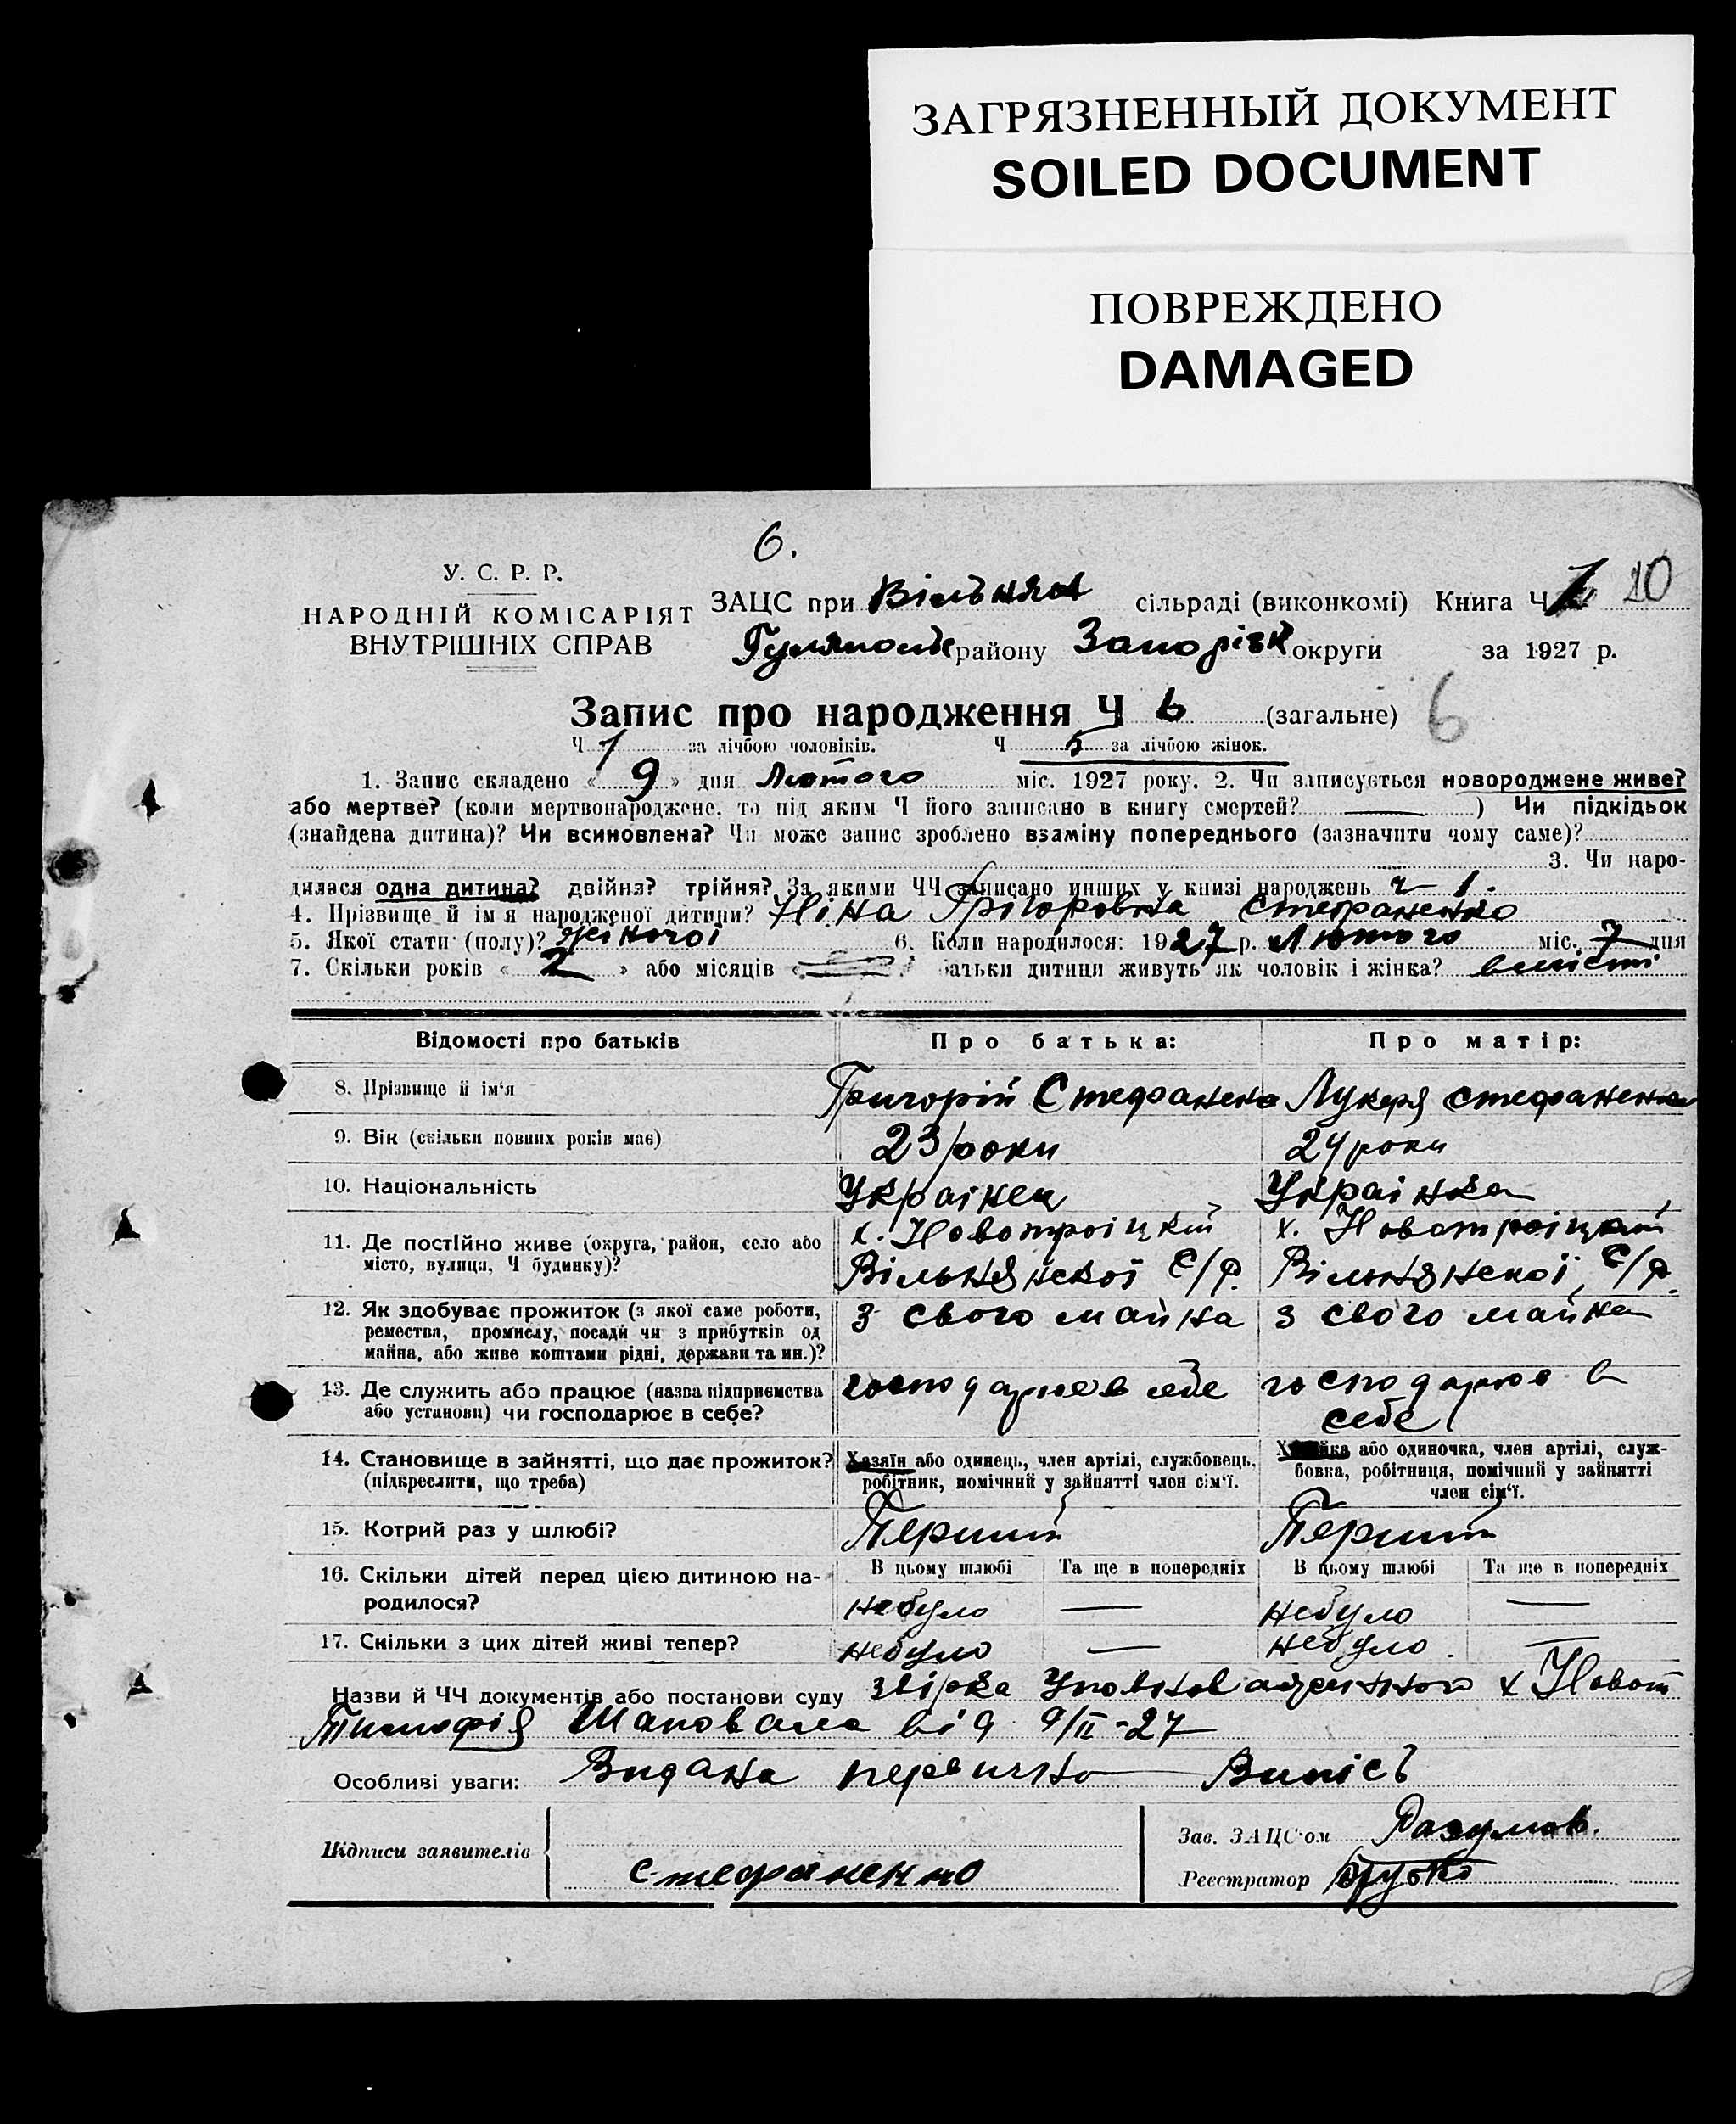 ЗАГРЯЗНЕННЫЙ ДОКУМЕНТ
SOILED DOCUMENT
ПОВРЕЖДЕНО
DAMAGED
6.
У. С. Р. Р.
НАРОДНІЙ КОМІСАРІЯТ
ВНУТРІШНІХ СПРАВ
ЗАЦС при сільраді (виконкомі) Книга Ч 10
району Запоріж округи за 1927 р.
Запис про народження Ч 6 (загальне) 6
Ч 1 за лічбою чоловіків. Ч 5 за лічбою жінок.
1. Запис складено « 9 » дня Лютого міс. 1927 року. 2. Чи записується новороджене живе?
або мертве? (коли мертвонароджене, то під яким Ч його записано в книгу смертей? ) Чи підкідьок
(знайдена дитина)? Чи всиновлена? Чи може запис зроблено взаміну попереднього (зазначити чому саме)?
3. Чи наро-
дилася одна дитина? двійня? трійня? За якими ЧЧ записано инших у книзі народжень ч 1.
4. Прізвище й ім'я народженої дитини? Ніна Грігоровна Стефаненко
5. Якої стати (полу)? жіночої 6. Коли народилося: 1927 р. Лютого міс. 7 дня
7. Скільки років « 2 » або місяців « батьки дитини живуть як чоловік і жінка? вмісті
Відомості про батьків
Про батька:
Про матір:
8. Прізвище й ім'я
Григорій Стефаненко
Лукеря Стефаненко
9. Вік (скільки повних років має)
23 роки
24 роки
10. Національність
Українец
Українка
11. Де постійно живе (округа, район, село або
місто, вулиця, Ч будинку)?
х. Новотроіцкій
Вільнянскої С/Р.
х. Новотроіцкий
Вільнянскої С/Р.
12. Як здобуває прожиток (з якої саме роботи,
ремества, промислу, посади чи з прибутків од
майна, або живе коштами рідні, держави та ин.)?
з свого майна
з свого майна
13. Де служить або працює (назва підприємства
або установи) чи господарює в себе?
господарює в себе
господарює в
себе
14. Становище в зайнятті, що дає прожиток?
(підкреслити, що треба)
Хазяїн або одинець, член артілі, службовець,
робітник, помічний у зайнятті член сім'ї.
Хазяйка або одиночка, член артілі, служ-
бовка, робітниця, помічний у зайнятті
член сім'ї.
15. Котрий раз у шлюбі?
Перший
Перший
16. Скільки дітей перед цією дитиною на-
родилося?
В цьому шлюбі Та ще в попередніх В цьому шлюбі Та ще в попередніх
небуло — небуло —
17. Скільки з цих дітей живі тепер?
небуло — небуло. —
Назви й ЧЧ документів або постанови суду звірка Уповноваженного х Новот
Тимофія Шаповала від 9/II-27
Особливі уваги: Видана первично Випісь
Підписи заявителів
Стефаненко
Зав. ЗАЦС'ом Разумов.
Реєстратор